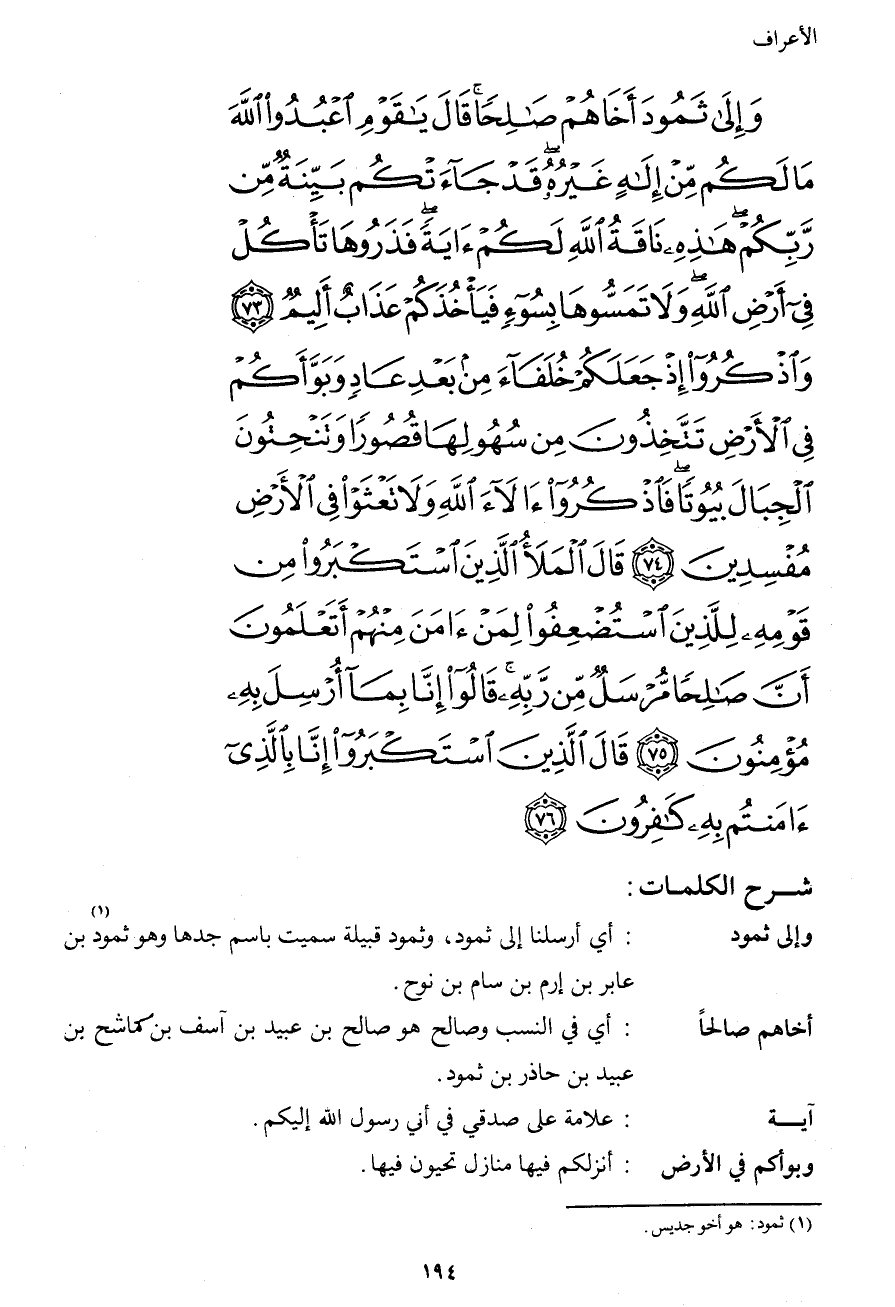 الأعراف
وَإِلَىٰ ثَمُودَ أَخَاهُمْ صَٰلِحًاۚ قَالَ يَٰقَوْمِ ٱعْبُدُوا۟ ٱللَّهَ
مَا لَكُم مِّنْ إِلَٰهٍ غَيْرُهُۥۖ قَدْ جَآءَتْكُم بَيِّنَةٌ مِّن
رَّبِّكُمْۖ هَٰذِهِۦ نَاقَةُ ٱللَّهِ لَكُمْ ءَايَةًۖ فَذَرُوهَا تَأْكُلْ
فِىٓ أَرْضِ ٱللَّهِۖ وَلَا تَمَسُّوهَا بِسُوٓءٍ فَيَأْخُذَكُمْ عَذَابٌ أَلِيمٌ ۝٧٣
وَٱذْكُرُوٓا۟ إِذْ جَعَلَكُمْ خُلَفَآءَ مِنۢ بَعْدِ عَادٍ وَبَوَّأَكُمْ
فِى ٱلْأَرْضِ تَتَّخِذُونَ مِن سُهُولِهَا قُصُورًا وَتَنْحِتُونَ
ٱلْجِبَالَ بُيُوتًاۖ فَٱذْكُرُوٓا۟ ءَالَآءَ ٱللَّهِ وَلَا تَعْثَوْا۟ فِى ٱلْأَرْضِ
مُفْسِدِينَ ۝٧٤ قَالَ ٱلْمَلَأُ ٱلَّذِينَ ٱسْتَكْبَرُوا۟ مِن
قَوْمِهِۦ لِلَّذِينَ ٱسْتُضْعِفُوا۟ لِمَنْ ءَامَنَ مِنْهُمْ أَتَعْلَمُونَ
أَنَّ صَٰلِحًا مُّرْسَلٌ مِّن رَّبِّهِۦۚ قَالُوٓا۟ إِنَّا بِمَآ أُرْسِلَ بِهِۦ
مُؤْمِنُونَ ۝٧٥ قَالَ ٱلَّذِينَ ٱسْتَكْبَرُوٓا۟ إِنَّا بِٱلَّذِىٓ
ءَامَنتُم بِهِۦ كَٰفِرُونَ ۝٧٦
شـرح الكلمـات :
وإلى ثمود : أي أرسلنا إلى ثمود، وثمود قبيلة سميت باسم جدها وهو ثمود(١) بن
عابر بن إرم بن سام بن نوح.
أخاهم صالحاً : أي في النسب وصالح هو صالح بن عبيد بن آسف بن كماشح بن
عبيد بن حاذر بن ثمود.
آيـــة : علامة على صدقي في أني رسول الله إليكم.
وبوأكم في الأرض : أنزلكم فيها منازل تحيون فيها.
(١) ثمود: هو أخو جديس.
١٩٤